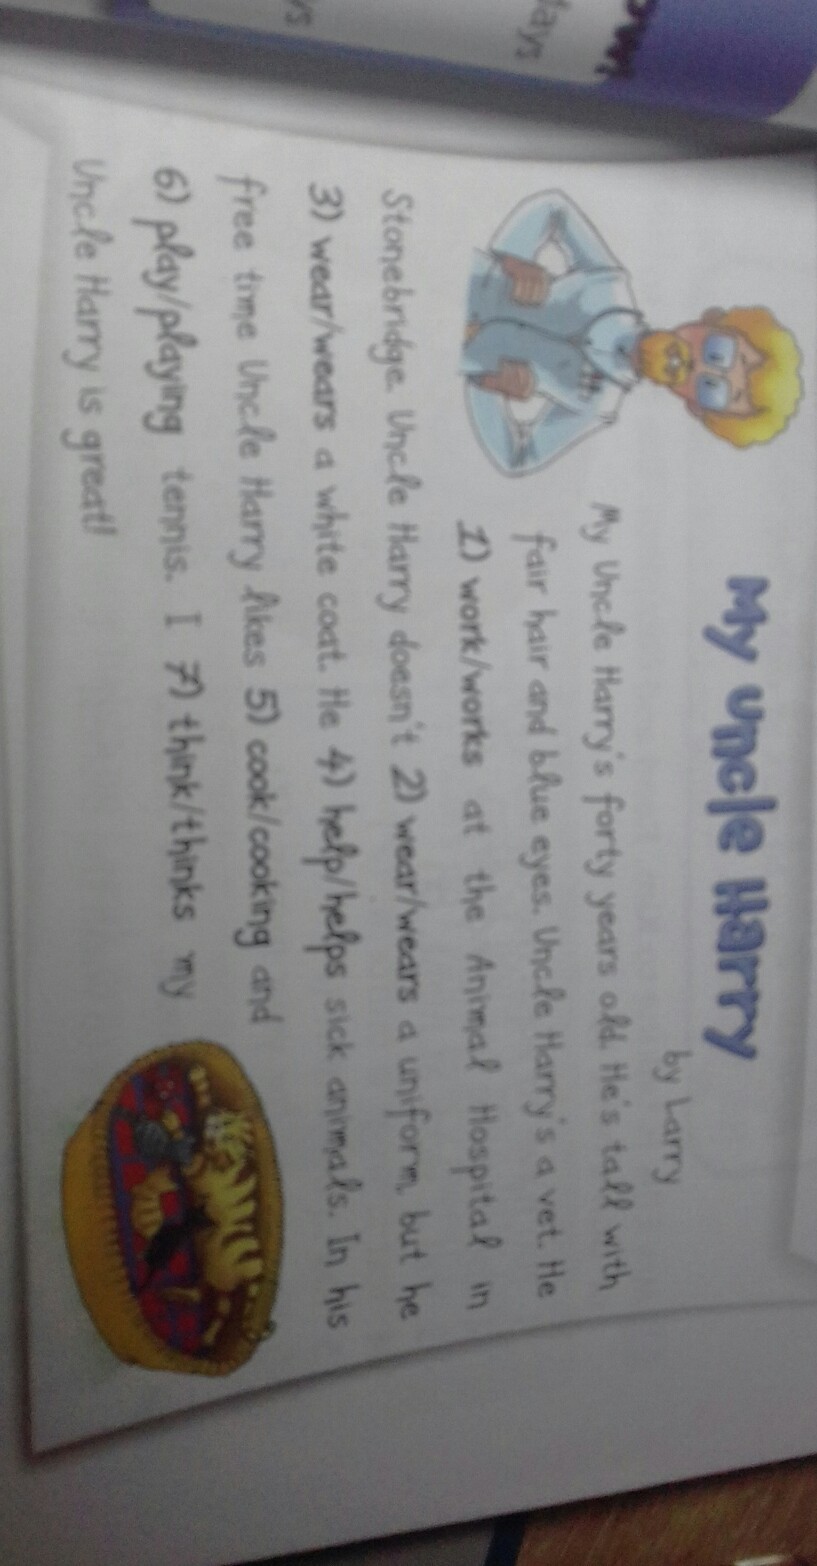 ow!
days
ys
My Uncle Harry
by Larry
My Uncle Harry's forty years old. He's tall with
fair hair and blue eyes. Uncle Harry's a vet. He
1) work/works at the Animal Hospital in
Stonebridge. Uncle Harry doesn't 2) wear/wears a uniform, but he
3) wear/wears a white coat. He 4) help/helps sick animals. In his
free time Uncle Harry likes 5) cook/cooking and
6) play/playing tennis. I 7) think/thinks my
Uncle Harry is great!